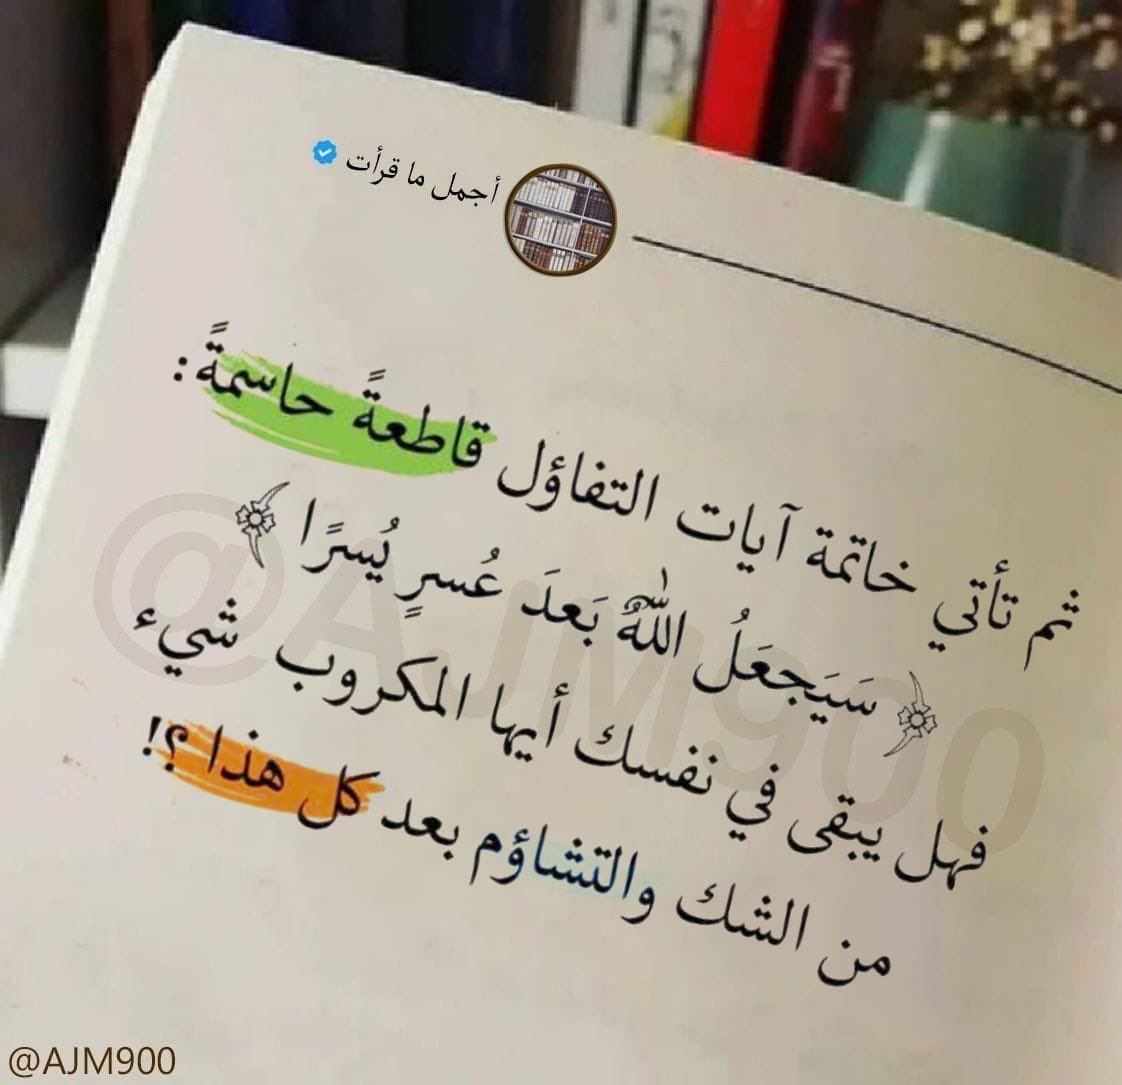 أجمل ما قرأت
ثم تأتي خاتمة آيات التفاؤل قاطعةً حاسمةً:
﴿ سَيَجعَلُ اللّٰهُ بَعدَ عُسرٍ يُسرًا ﴾
فهل يبقى في نفسك أيها المكروب شيء
من الشك والتشاؤم بعد كل هذا ؟!
@AJM900
@AJM900